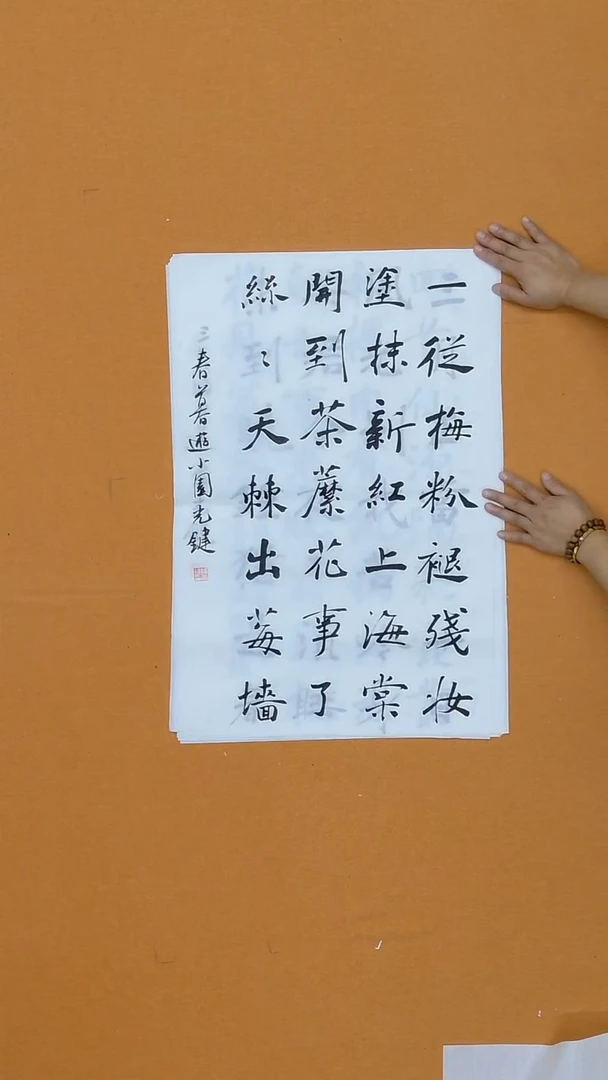 二從梅粉褪残妆
塗抹新紅上海棠
開到茶蘼花事了
絲〻天棘出莓墻
三春暮遊小園光鍵